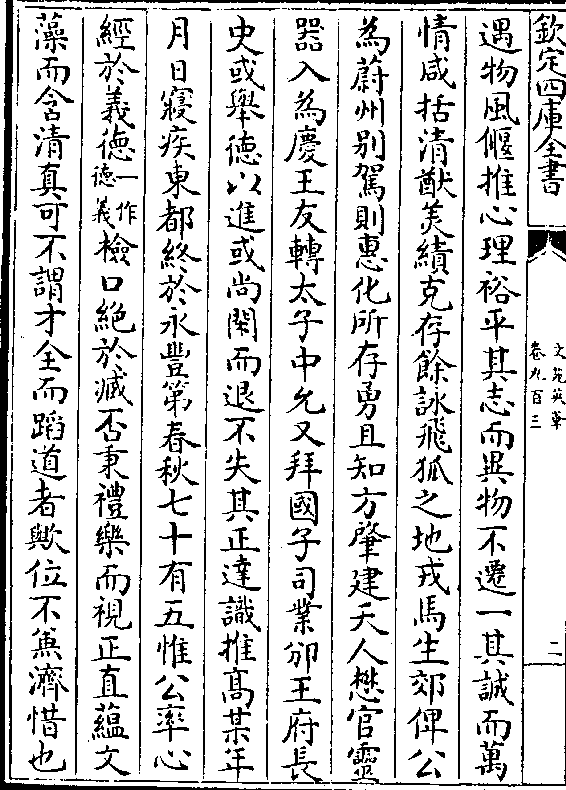 欽定四庫全書
文苑英華
卷九百三
二
遇物風偃推心理裕平其志而異物不遷一其誠而萬
情咸括清猷美績克存餘詠飛狐之地戎馬生郊俾公
為蔚州别駕則惠化所存勇且知方肇建天人懋官靈
器入為慶王友轉太子中允又拜國子司業邠王府長
史或舉德以進或尚閑而退不失其正達識推髙某年
月日寢疾東都終於永豐第春秋七十有五惟公率心
經於義徳一作徳義檢口絶於臧否秉禮樂而視正直藴文
藻而含清真可不謂才全而蹈道者歟位不兼濟惜也